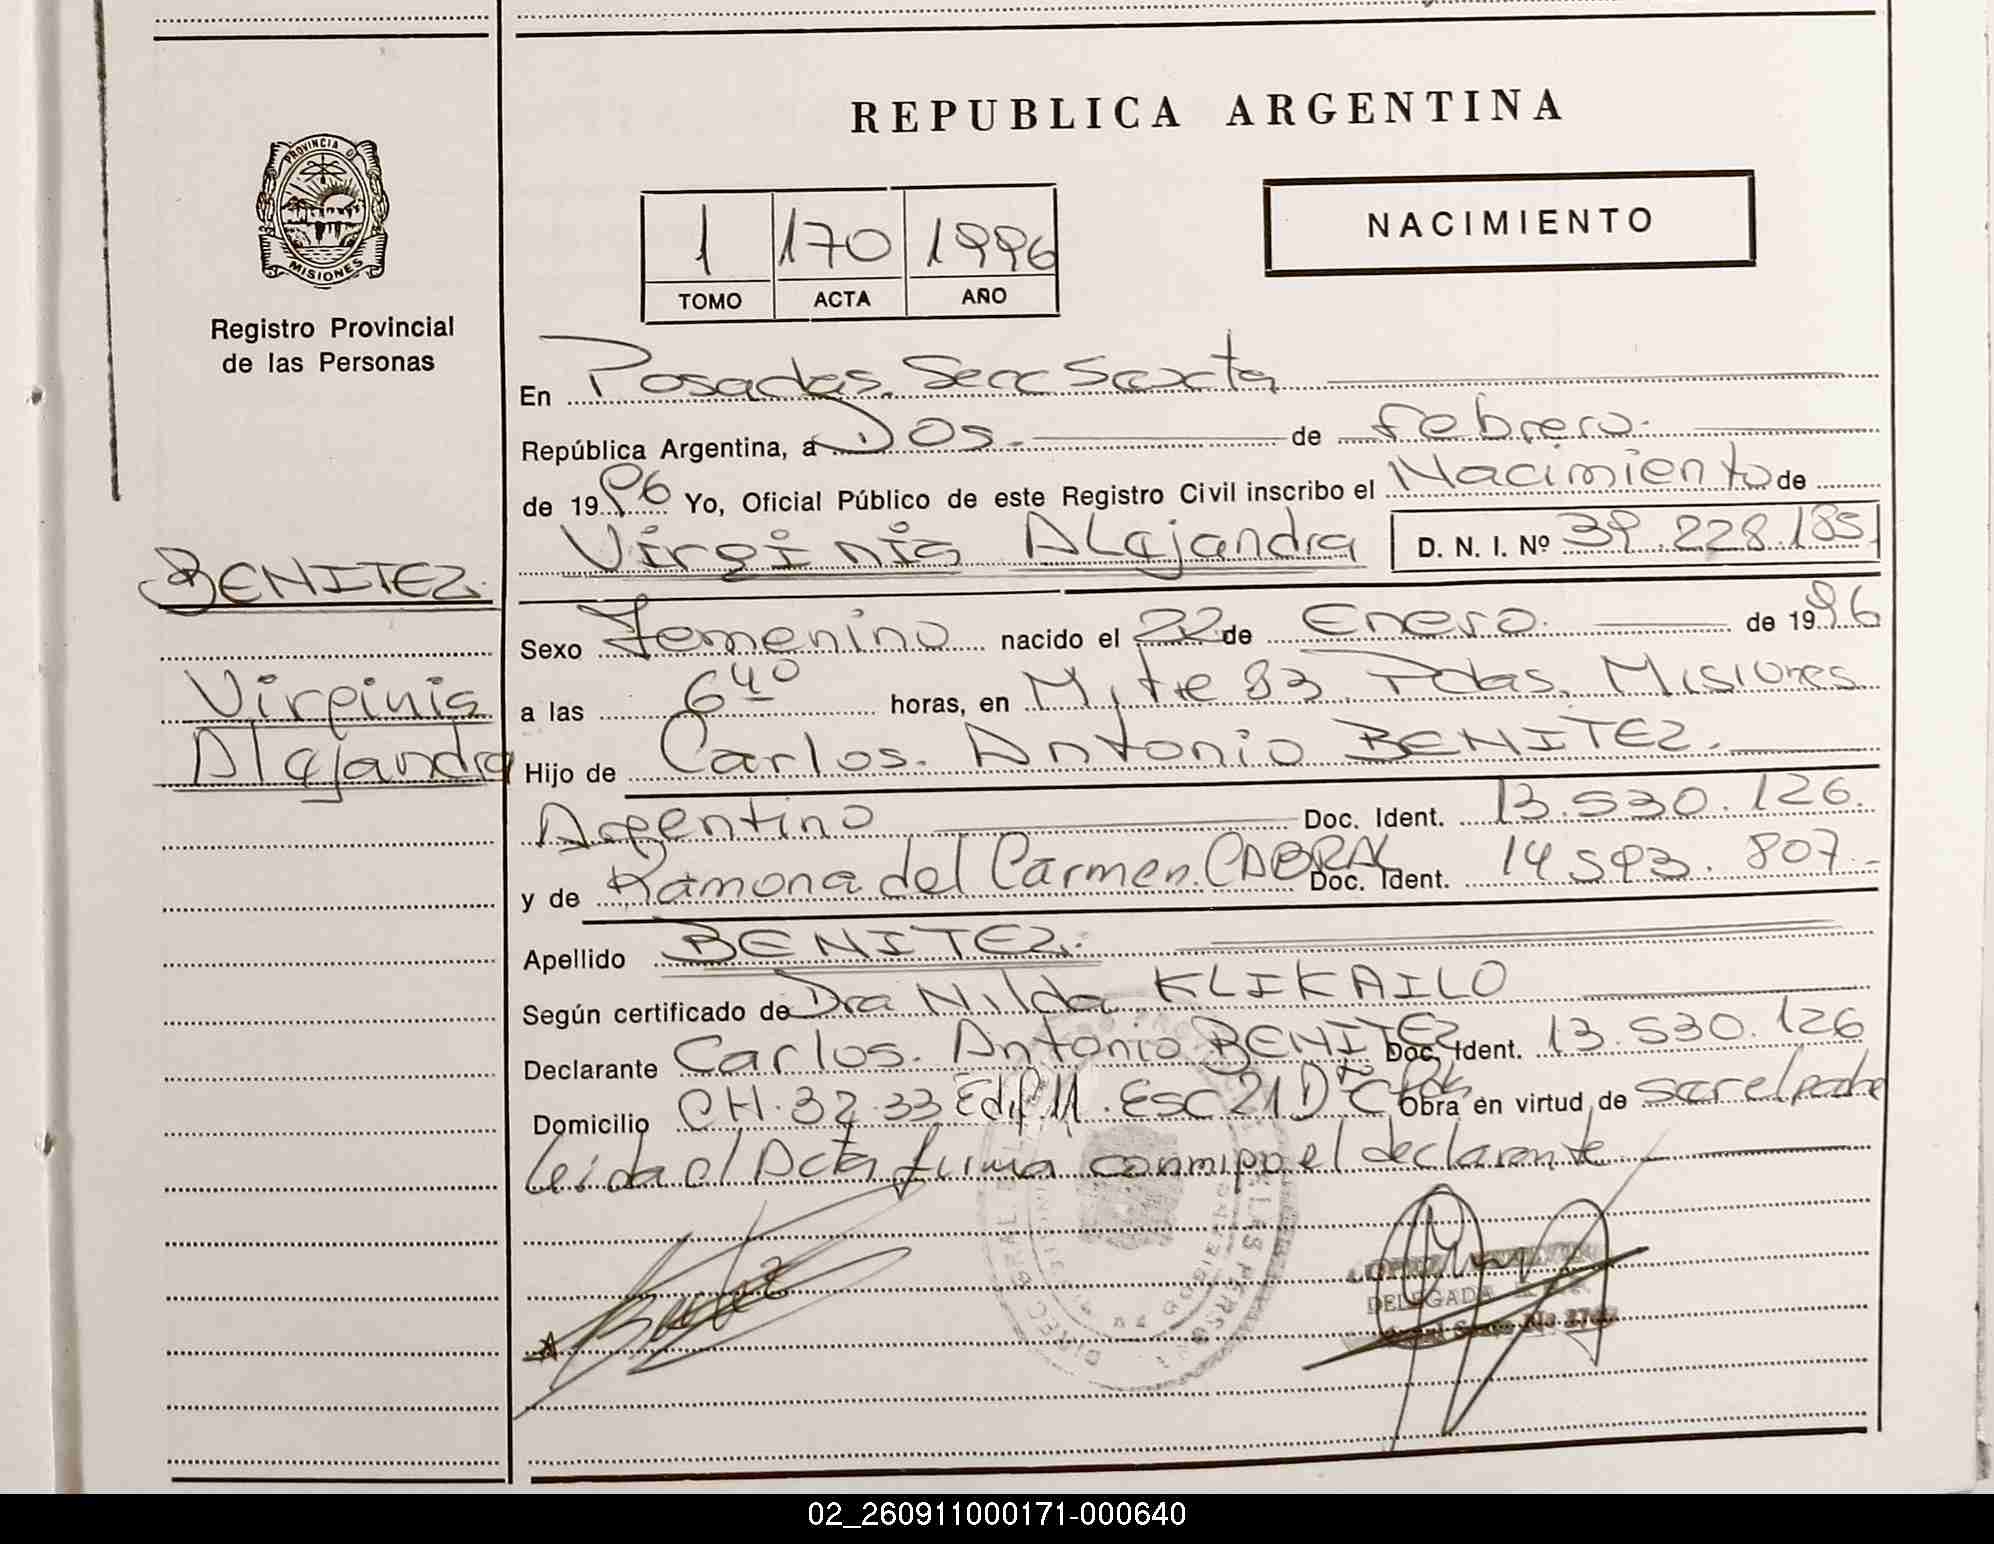 REPUBLICA ARGENTINA
PROVINCIA D
MISIONES
Registro Provincial
de las Personas
1 170 1996
TOMO ACTA AÑO
NACIMIENTO
En Posadas, Secc Sexta
República Argentina, a Dos. de febrero.
de 1996 Yo, Oficial Público de este Registro Civil inscribo el Nacimiento de
Virginia Alejandra D. N. I. Nº 39.228.185
BENITEZ.
Virginia
Alejandra
Sexo Femenino nacido el 22 de Enero. de 1996
a las 6 40 horas, en Mitre 83, Pdas. Misiones
Hijo de Carlos. Antonio BENITEZ.
Argentino Doc. Ident. 13.530.126.
y de Ramona del Carmen. CABRAL Doc. Ident. 14.593.807.-
Apellido BENITEZ.
Según certificado de Dra Nilda KLIKAILO
Declarante Carlos. Antonio BENITEZ Doc. Ident. 13.530.126
Domicilio CH. 32.33 Edif 11. Esc 21 Dto C Obra en virtud de ser el padre
leida el Acta firma conmigo el declarante
DELEGADA
02_260911000171-000640